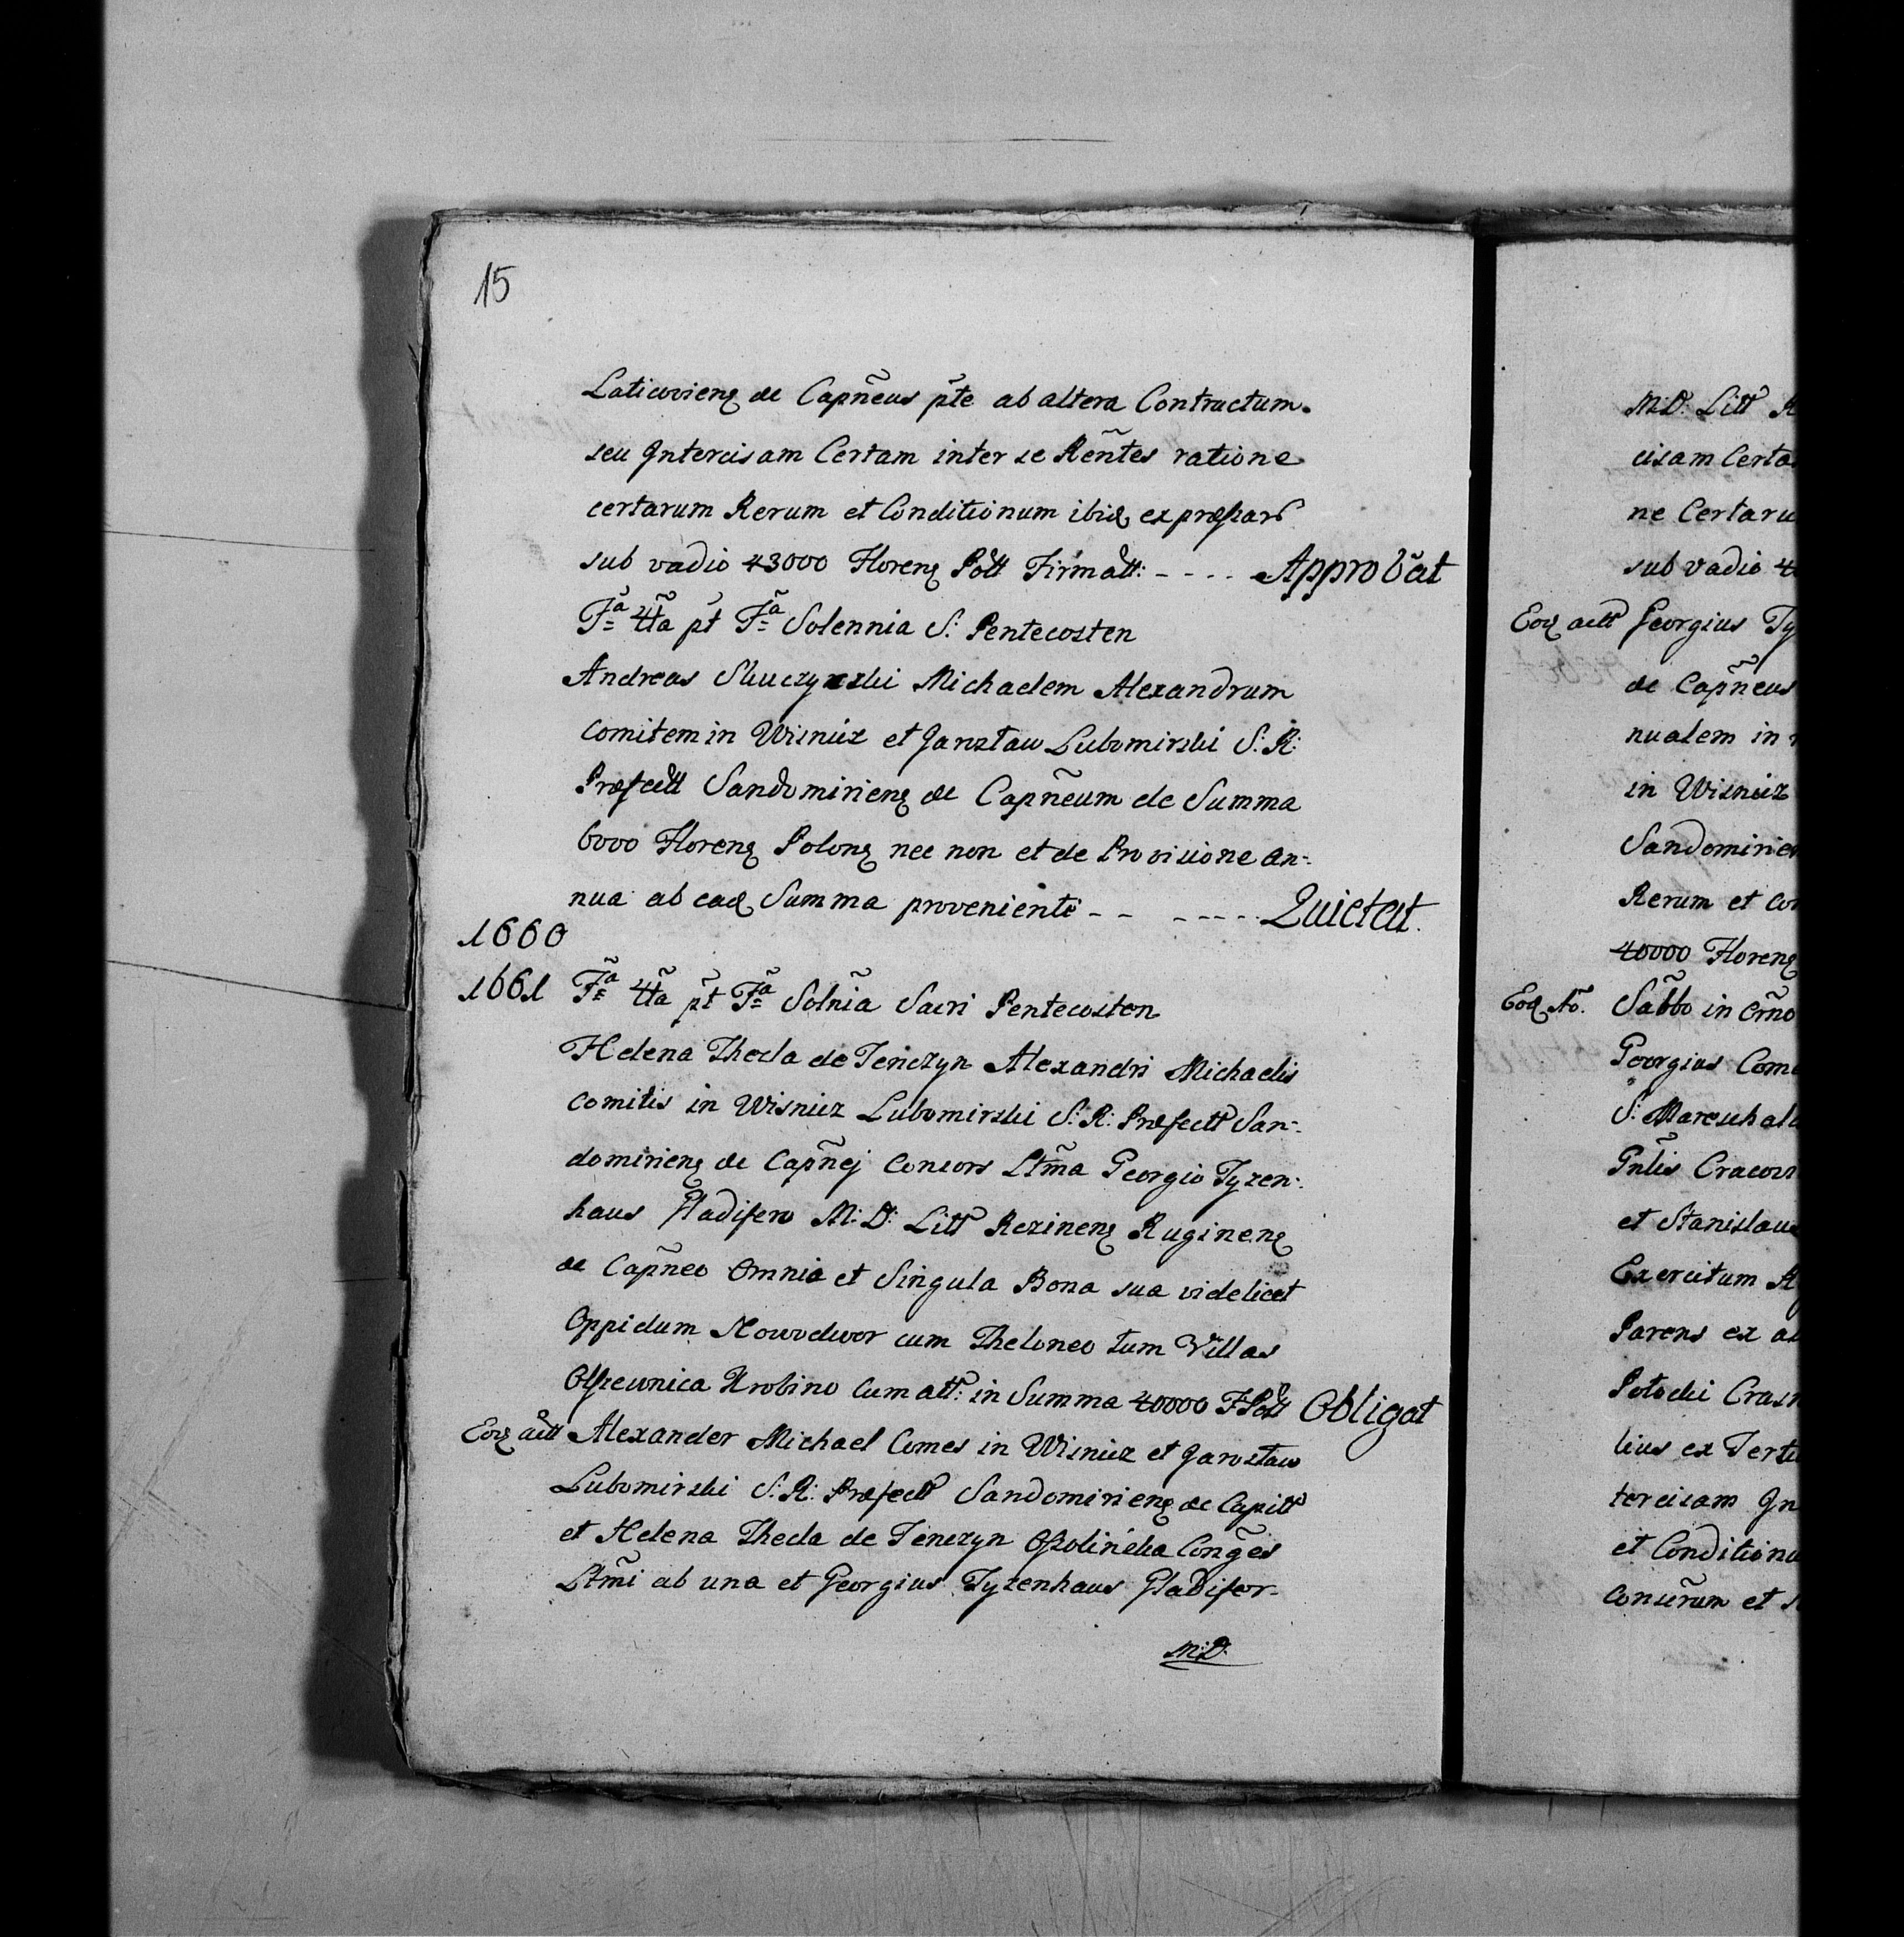 15
Laticovienꝗ ac Capñeus p̃te ab altera Contractum
seu Intercisam Certam inter se R̃entes ratione
certarum Rerum et Conditionum ibiꝗ expressar
sub vadio 43000 Florenꝗ Poll Firmatt: - - - - Approbãt
Fã 4tã pt Fã Solennia S: Pentecosten
Andreas Michaelem Alexandrum
Comitem in Wisnicz et Jarosław Lubomirski S: R:
Præfectt Sandomirienꝗ ac Capñeum de Summa
6000 Florenꝗ Polonꝗ nec non et de Provisione an-
nua ab eaꝗ Summa proveniente - - - - - - - Quietat.
1660
1661 Fã 4tã pt Fã Solñia Sacri Pentecosten
Helena Thecla de Tenczyn Alexandri Michaelis
Comitis in Wisnicz Lubomirski S: R: Præfectt San-
domirienꝗ ac Capñej Consors Ltm̃a Georgio Tyzen-
haus Gladifero M: D: Litt Rezinenꝗ Ruginenꝗ
ac Capñeo Omnia et Singula Bona sua videlicet
Oppidum Nowodwor cum Theloneo tum Villas
Olszewnica Krobino Cum att: in Summa 40000 FPoll Obligat
Eoꝗ actt Alexander Michael Comes in Wisnicz et Jarosław
Lubomirski S: R: Præfectt Sandomirienꝗ ac Capitt
et Helena Thecla de Tenczyn Ossolińska Coñges
Ltm̃i ab una et Georgius Tyzenhaus Gladifer
M: D:
M: D: Litt R
cisam Certa
ne Certaru
sub vadio 4
Eoꝗ actt Georgius Ty
ac Capñeus
nualem in
in Wisnicz
Sandomirien
Rerum et Con
40000 Florenꝗ
Eoꝗ Aõ. Sabb̃o in Cr̃no
Georgius Com
S: Mareschal
Gñlis Cracov
et Stanislau
Exercitum R
Parens ex a
Potocki Crasn
lius ex Tert
tercisam In
et Conditionu
Conser̃um et